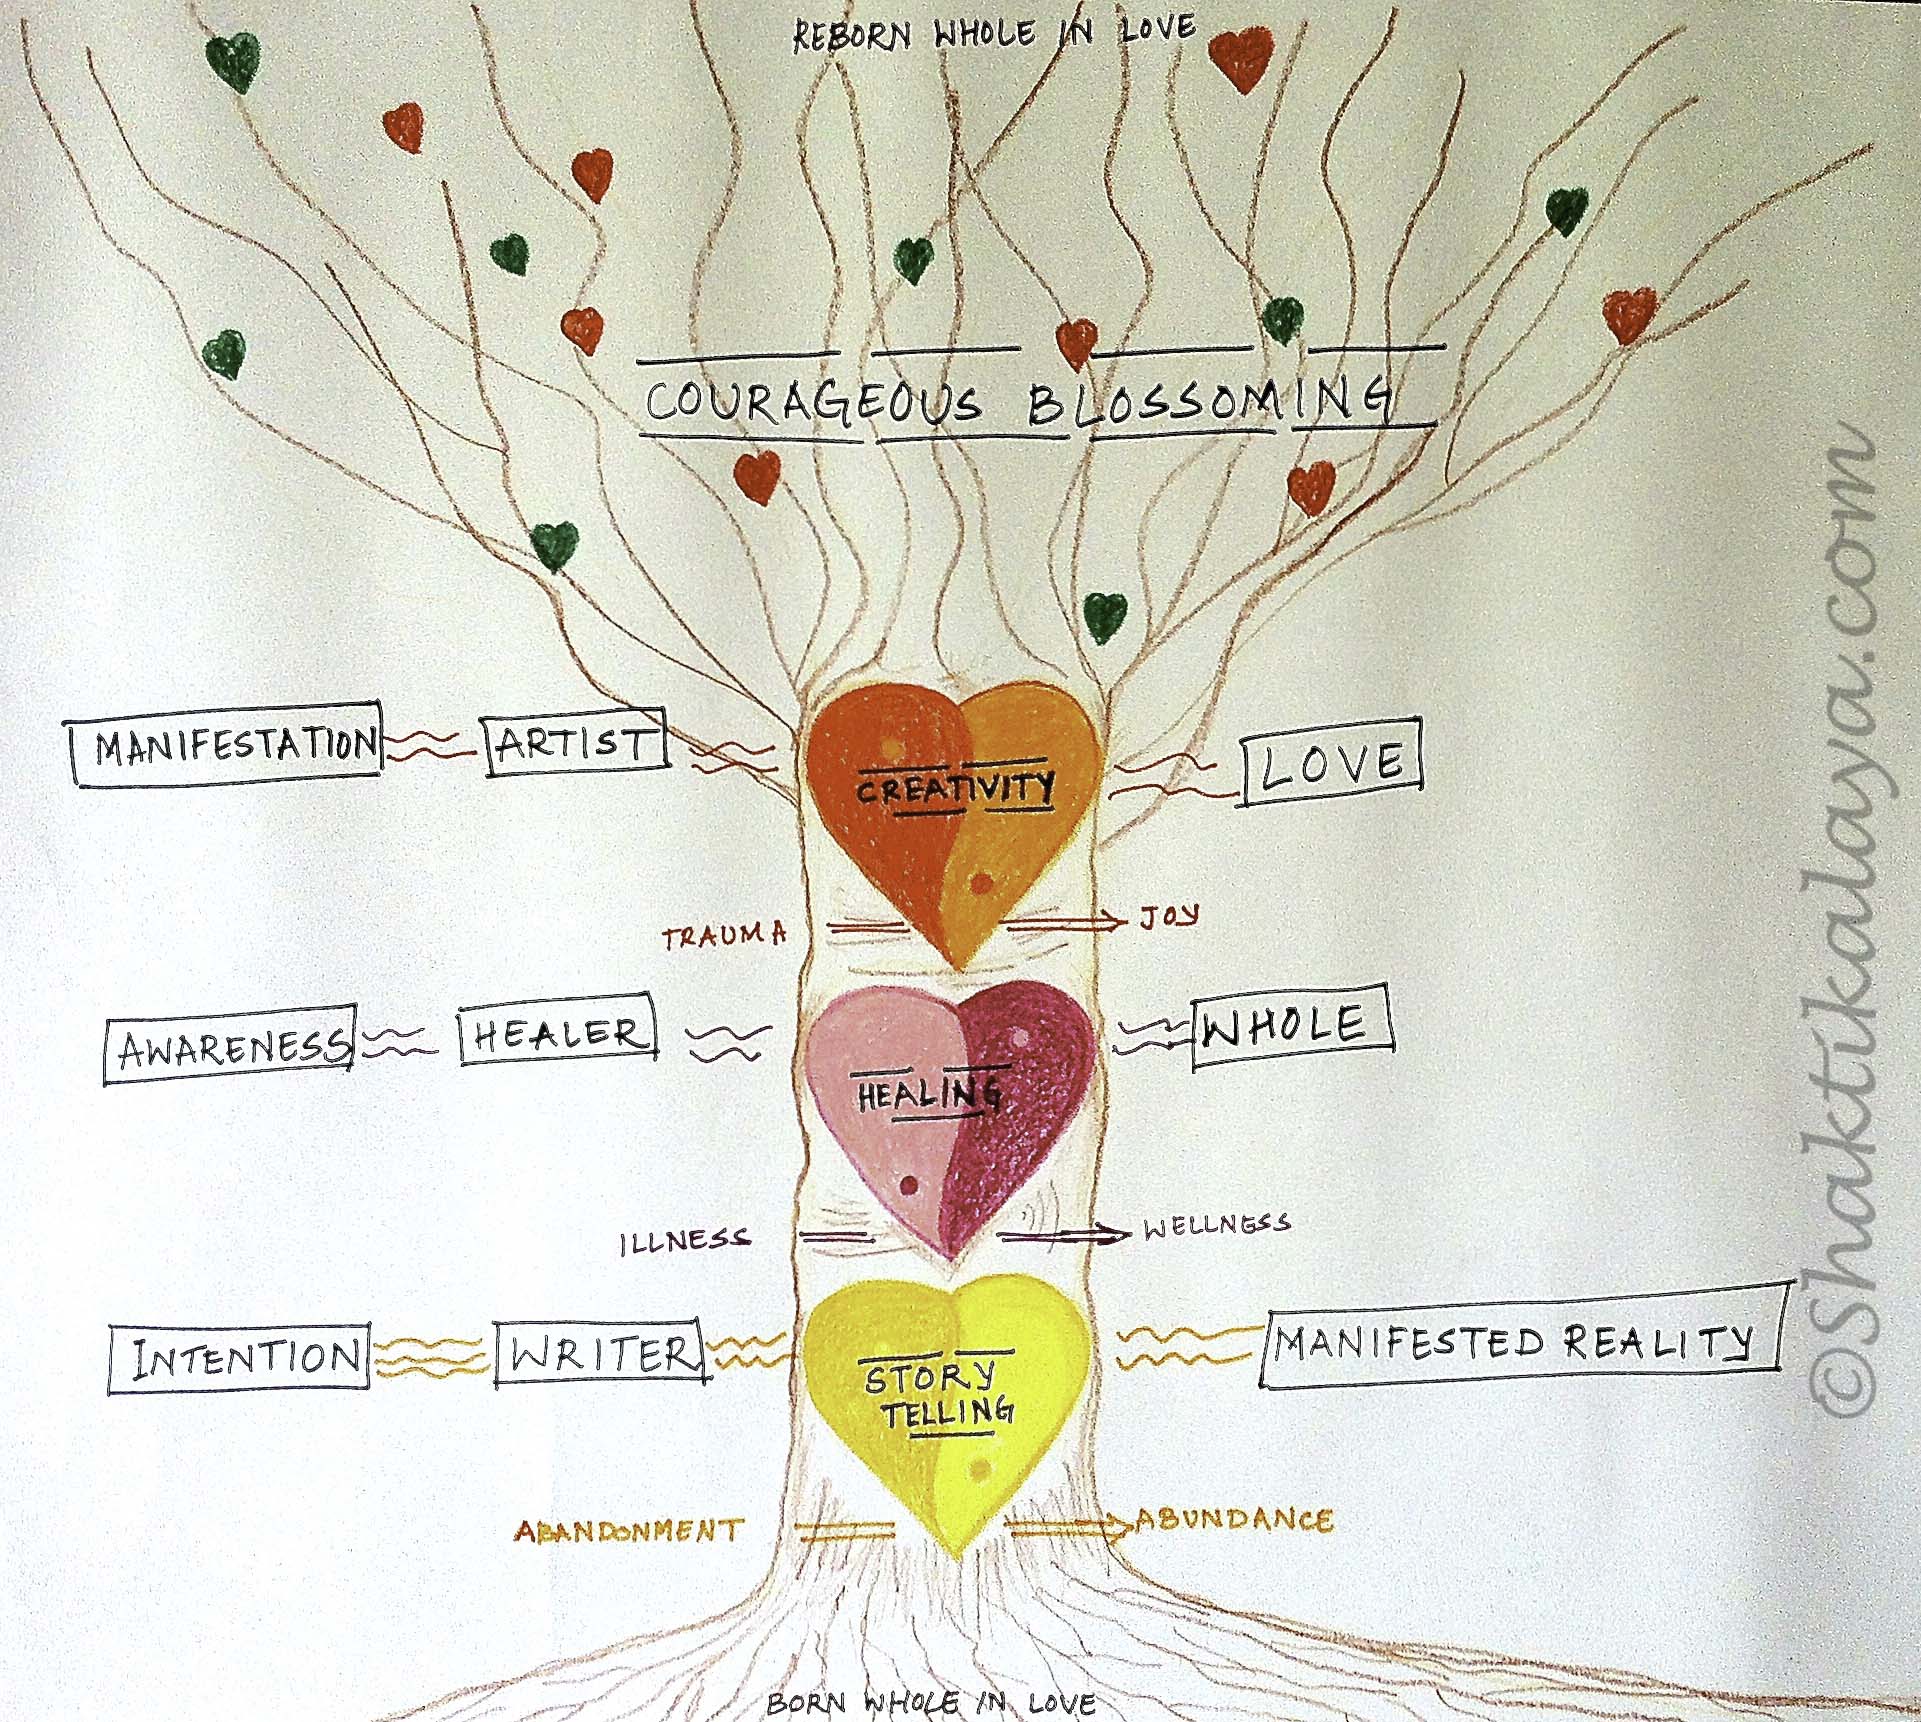 REBORN WHOLE IN LOVE
COURAGEOUS BLOSSOMING
MANIFESTATION ARTIST CREATIVITY LOVE
TRAUMA JOY
AWARENESS HEALER HEALING WHOLE
ILLNESS WELLNESS
INTENTION WRITER STORY TELLING MANIFESTED REALITY
ABANDONMENT ABUNDANCE
BORN WHOLE IN LOVE
©Shaktikalaya.com